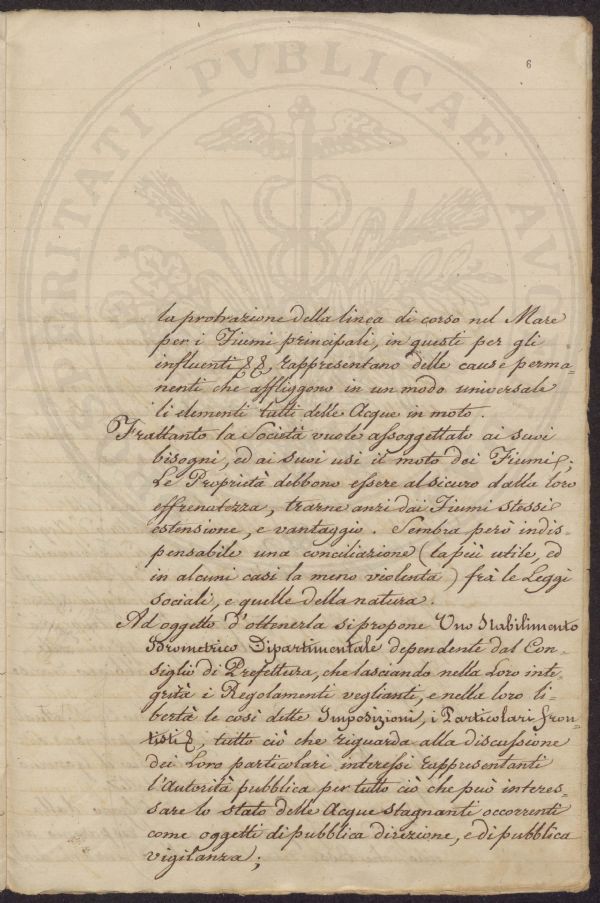 6
PROSPERITATI PVBLICAE AVG
la protrazione della linea di corso nel Mare
per i Fiumi principali, in questi per gli
influenti &&, rappresentano delle cause perma=
nenti che affliggono in un modo universale
li elementi tutti delle Acque in moto.
Frattanto la Società vuole assoggettato ai suoi
bisogni, ed ai suoi usi il moto dei Fiumi;
Le Proprietà debbono essere al sicuro dalla loro
effrenatezza, trarne anzi dai Fiumi stessi
estensione, e vantaggio. Sembra però indis=
pensabile una conciliazione (la più utile, ed
in alcuni casi la meno violenta) frà le Leggi
sociali, e quelle della natura.
Ad oggetto d'ottenerla si propone Uno Stabilimento
Idrometrico Dipartimentale dependente dal Con=
siglio di Prefettura, che lasciando nella Loro inte=
grità i Regolamenti veglianti, e nella loro li=
bertà le così dette Imposizioni, i Particolari fron=
tisti &, tutto ciò che riguarda alla discussione
dei Loro particolari interessi rappresentanti
l'Autorità pubblica per tutto ciò che può interes=
sare lo stato delle Acque stagnanti occorrenti
come oggetti di pubblica direzione, e di pubblica
vigilanza;